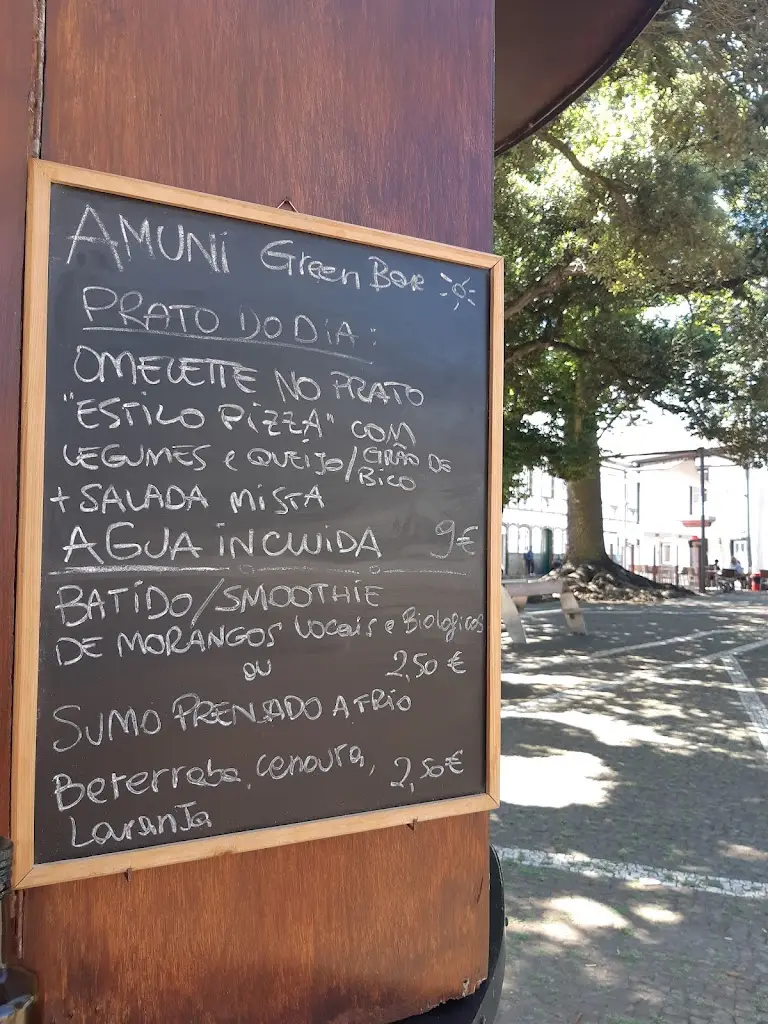 AMUNI Green Bar
PRATO DO DIA:
OMELETTE NO PRATO
"ESTILO PIZZA" COM
LEGUMES e QUEIJO/GRÃO DE BICO
+ SALADA MISTA
AGUA INCLUIDA 9€
BATIDO/SMOOTHIE
DE MORANGOS Locais e Biologicos
ou 2,50 €
SUMO PRENSADO A FRIO
Beterraba, cenoura, 2,50€
Laranja